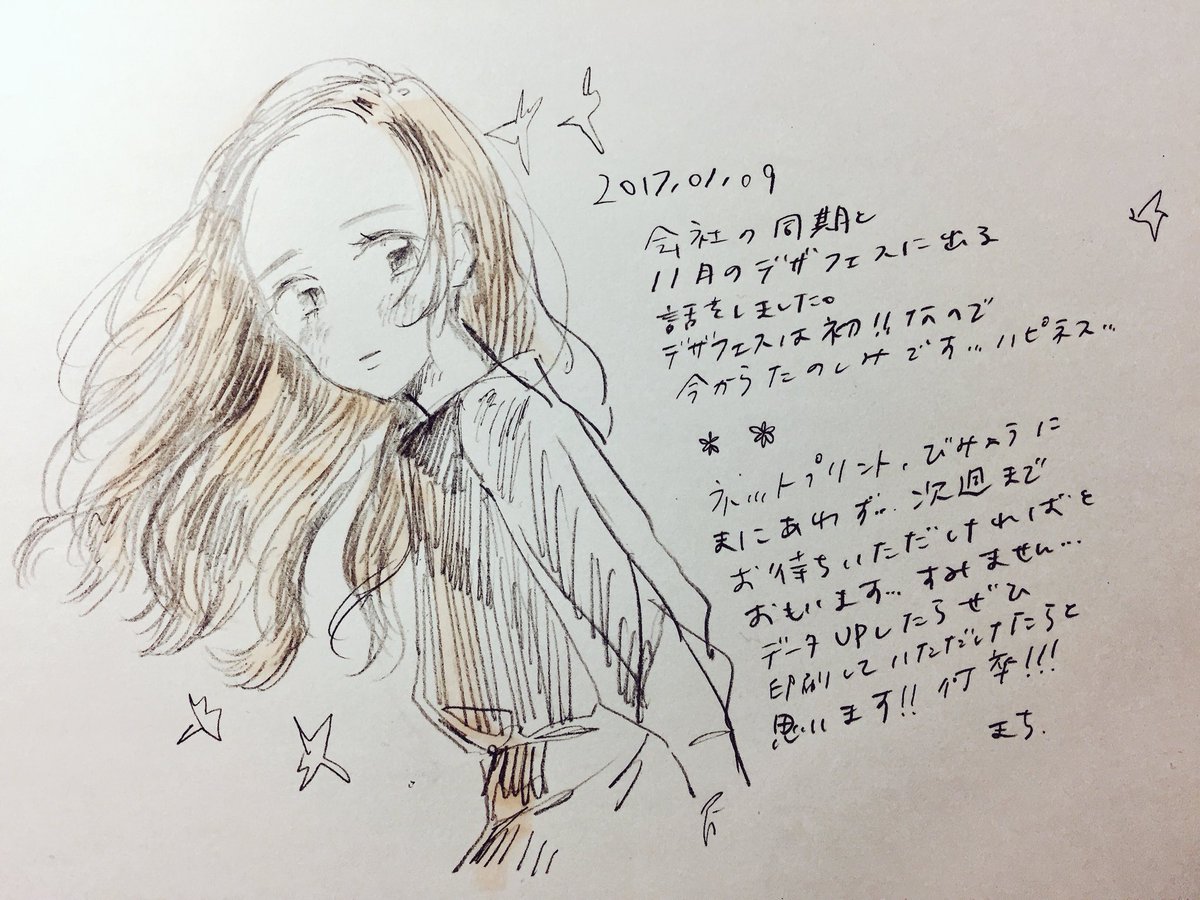 2017.01.09
会社の同期と
11月のデザフェスに出る
話をしました。
デザフェスは初!!なので
今からたのしみです…ハピネス…
ネットプリント、びみょうに
まにあわず…次週まで
お待ちいただければと
おもいます…すみません…
データUPしたらぜひ
印刷していただけたらと
思います!!何卒!!!
まち.